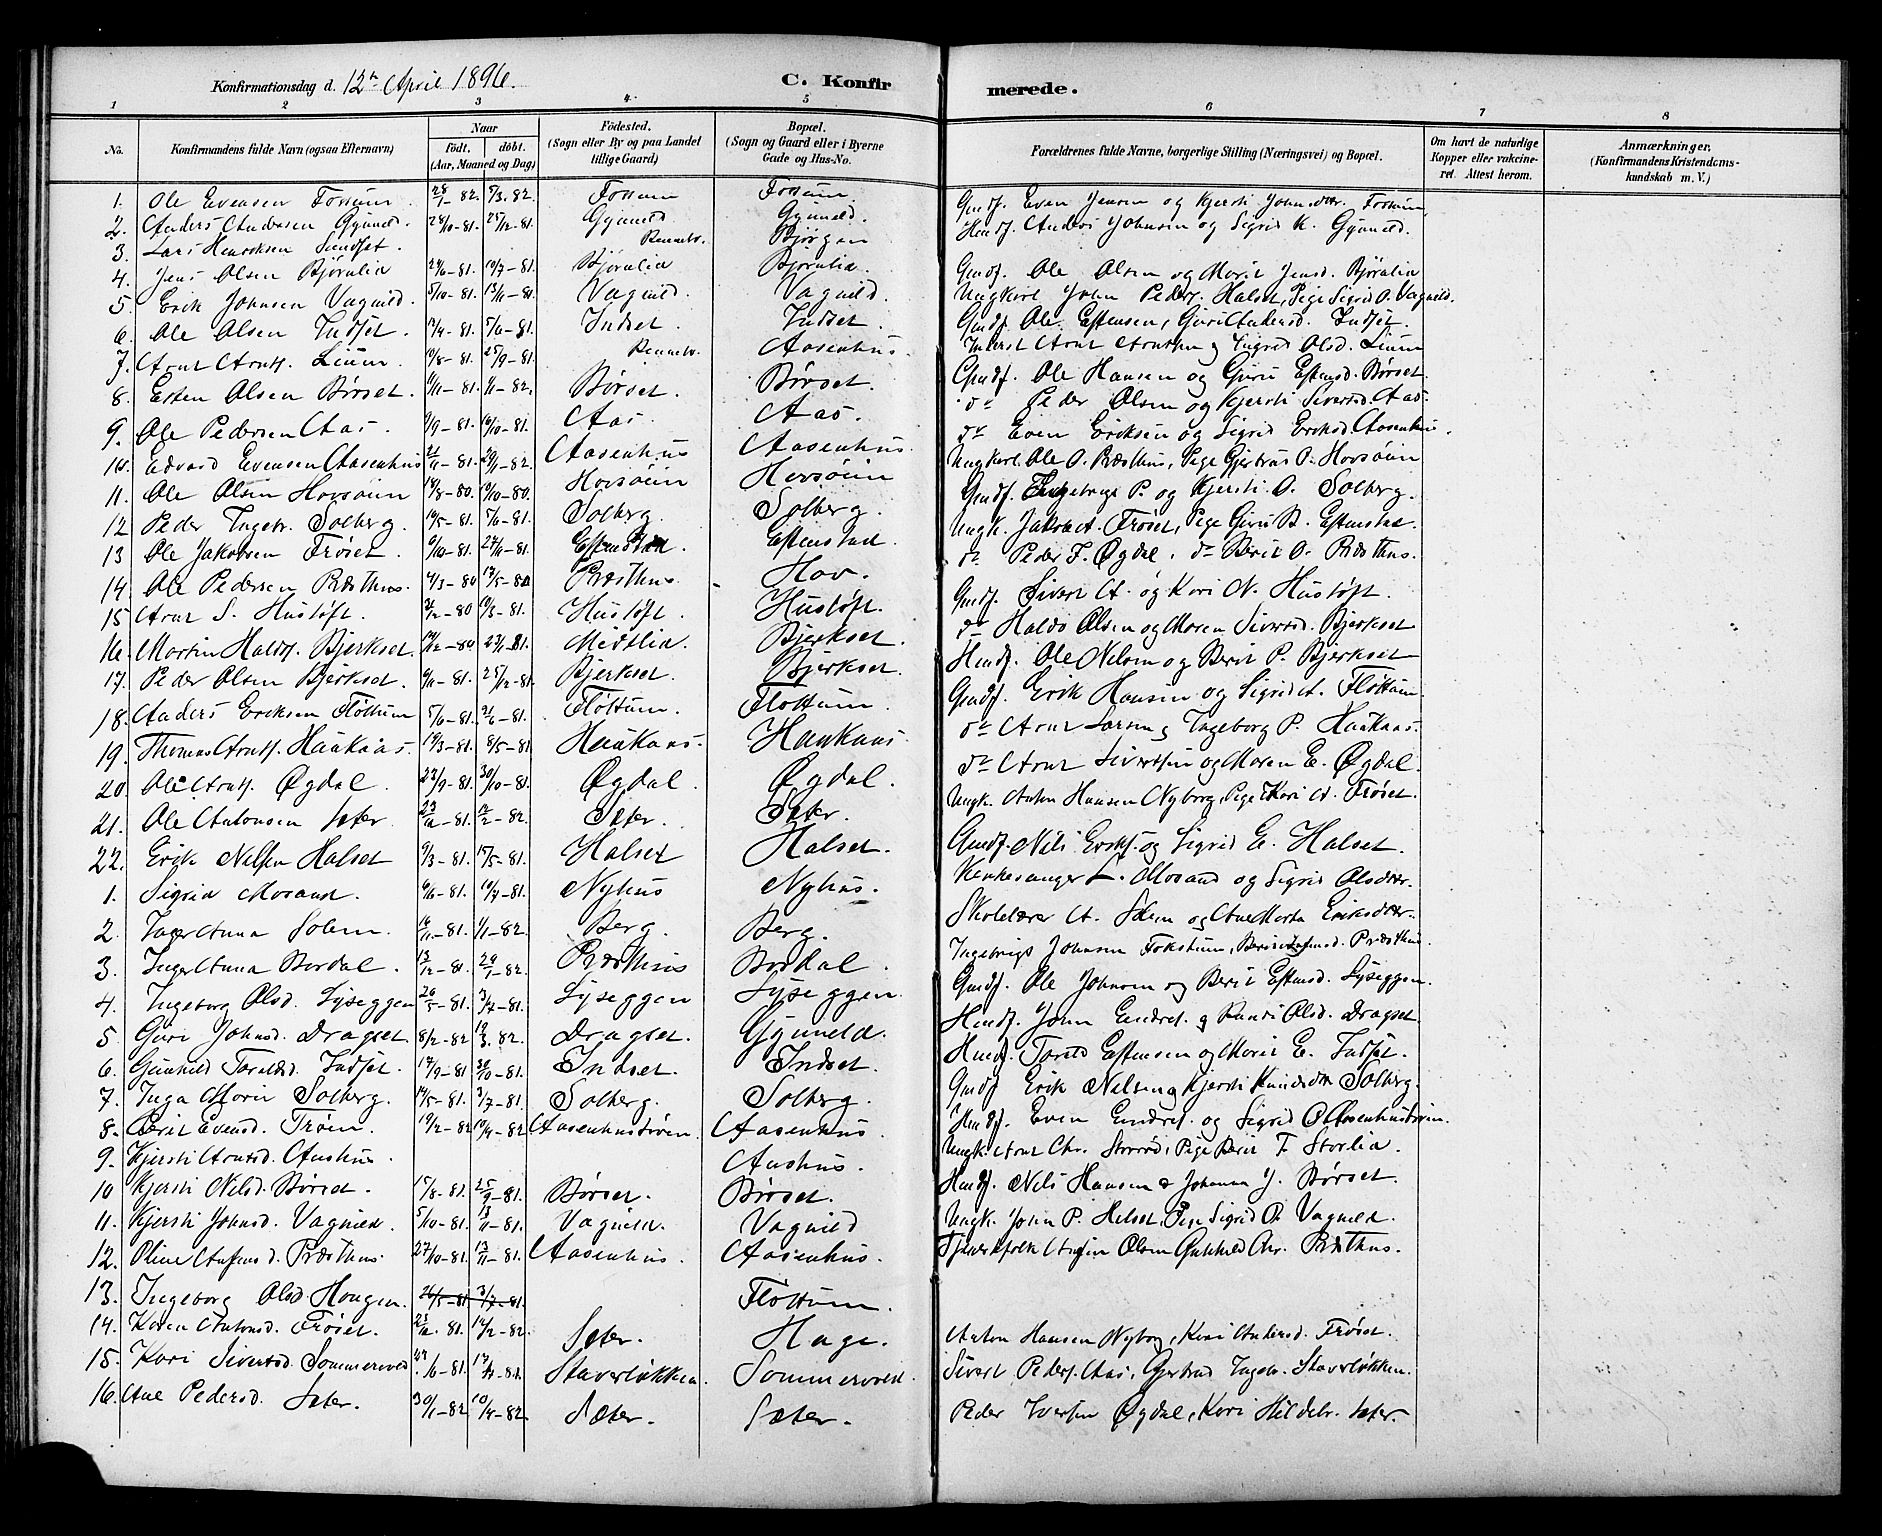 Konfirmationsdag d. 12te April 1896.
C. Konfirmerede.
1 2 3 4 5 6 7 8
No. Konfirmandens fulde Navn (ogsaa Efternavn) Naar født. døbt. (Aar, Maaned og Dag) Fødested. (Sogn eller By og paa Landet tillige Gaard) Bopæl. (Sogn og Gaard eller i Byerne Gade og Hus-No. Forældrenes fulde Navne, borgerlige Stilling (Næringsvei) og Bopæl. Om havt de naturlige Kopper eller vakcineret. Attest herom. Anmærkninger. (Konfirmandens Kristendomskundskab m. V.)
1. Ole Evensen Fossum 28/1-82. 5/3.82. Fossum Fossum. Gmdf. Even Jensen og Kjersti Johnsdtr. Fossum
2. Anders Andersen Gynneld. 28/10-81. 25/12-81. Gynneld. Gynneld. Husdf. Anders Johnsen og Sigrid K. Gynneld.
3. Lars Henriksen Sundset. Rennebo. Bjørgen
4. Jens Olsen Bjørnlia 24/6-81. 10/7-81. Bjørnlia Bjørnlia. Gmdf. Ole Olsen og Marit Jensd. Bjørnlia
5. Erik Johnsen Vagnild. 5/10-81. 13/11-81. Vagnild. Vagnild. Ungkarl John Peders. Halset, Pige Sigrid O. Vagnild.
6. Ole Olsen Indset. 12/4-81. 5/6-81. Indset. Indset. Gmdf. Ole Estensen, Guri Andersd. Indset.
7. Arnt Arnts. Lium. 10/8-81. 25/9-81. Rennebo. Aasenhus. Inderst Arnt Arntsen og Ingrid Olsd. Lium
8. Esten Olsen Børset. 6/11-81. 1/1-82. Børset. Børset. Gmdf. Ole Hansen og Guru Estensd. Børset.
9. Ole Pedersen Aas. 9/9-81. 16/10-81. Aas Aas. do Peder Olsen og Kjersti Sivertsd. Aas.
10. Edvard Evensen Aasenhus 21/11-81. 29/1-82. Aasenhus Aasenhus. do Even Eriksen og Sigrid Eriksd. Aasenhus.
11. Ole Olsen Hovsøien 19/8-80. 19/10-80. Hovsøien Hovsøien Ungkarl. Ole O. Præsthus, Pige Gjertrud O. Hovsøien
12 Peder Ingebr. Solberg. 19/5-81. 5/6-81. Solberg. Solberg. Gmdf. Ingebrigt P. og Kjersti O. Solberg.
13 Ole Jakobsen Frøset. 9/10-81. 27/11-81. Estenstad. Estenstad Ungk. Jakob A. Frøset, Pige Guru B. Estenstad.
14. Ole Pedersen Præsthus. 4/3-80 17/5-80 Præsthus. Hov. do Peder F. Øgdal. do Berit O. Præsthus.
15 Arnt S. Husløft. 31/12-80 19/3-81. Husløft. Husløft. Gmdf. Sivert A. og Kari N. Husløft.
16. Martin Halds. Bjerkset. 14/12-80 23/1-81. Medtlia. Bjerkset. do Haldo Olsen og Maren Sivertsd. Bjerkset
17. Peder Olsen Bjerkset. 6/11-81. 25/12-81. Bjerkset. Bjerkset Husdf. Ole Nilsen og Berit P. Bjerkset
18. Anders Eriksen Fløttum 5/6-81. 26/6-81. Fløttum. Fløttum. Gmdf. Erik Hansen og Sigrid A. Fløttum
19. Thomas Arnts. Haukaas. 19/3-81. 8/5-81. Haukaas. Haukaas do Arnt Larsen og Ingeborg P. Haukaas.
20 Ole Arnts. Øgdal. 23/9-81. 30/10-81. Øgdal. Øgdal. do Arnt Sivertsen og Maren E. Øgdal.
21. Ole Antonsen Sæter. 23/12-81. 12/2-82. Sæter. Sæter. Ungk. Anton Hansen Nyborg, Pige Kari A. Frøset.
22. Erik Nilsen Halset 9/3-81. 15/5-81. Halset Halset. Gmdf. Nils Eriks. og Sigrid E. Halset.
1. Sigrid Mosand. 6/6-81. 10/7-81. Nyhus Nyhus. Kirkesanger L. Mosand og Sigrid Olsdtr.
2. Inger Anna Solem. 16/11-81. 1/1-82. Berg. Berg. Skolelærer A. Solem og Ane Marta Eriksdtr.
3. Inger Anna Bordal. 13/12-81. 29/1-82. Præsthus Bordal. Ingebrigt Johnsen Fokstum, Berit Præsthus.
4. Ingeborg Olsd. Lyseggen 26/5-81. 3/7-81. Lyseggen Lyseggen. Gmdf. Ole Johnsen og Berit Estensd. Lyseggen.
5. Guri Johnsd. Dragset 8/2-82 19/3.82. Dragset. Gynneld. Husdf. John Endres. og Randi Olsd. Dragset.
6. Gunhild Toraldsd. Indset. 17/9-81 30/10-81. Indset. Indset. Husdf. Torald Estensen og Marit E. Indset.
7. Inga Marie Solberg. 14/5-81. 3/7-81. Solberg. Solberg. Gmdf. Erik Nilsen og Kjersti Knudsdtr. Solberg.
8. Berit Evensd. Trøen. 19/2-82 10/4-82 Aasenhustrøen. Aasenhus. Husdf. Even Endres. og Sigrid O. Aasenhustrøen.
9. Kjersti Arntsd. Aushus. Aushus. Ungk. Arnt Chr. Storrø, Pige Berit F. Storlia.
10 Kjersti Nilsd. Børset. 15/8-81. 25/9-81. Børset. Børset. Husdf. Nils Hansen & Johanna J. Børset.
11. Kjersti Johnsd. Vagnild. 5/10-81. 13/11-81. Vagnild. Vagnild Ungk. John P. Halset, Pige Sigrid O. Vagnild.
12. Oline Præsthus. 27/10-81. 13/11-81. Aasenhus. Aasenhus. Tjenestfolk Olsen Chr. Præsthus.
13. Ingeborg Olsd. Haugen. 26/5-81. 3/7-81. Fløttum.
14. Karen Antonsd. Frøset. 23/12.81. 12/2-82. Sæter. Hage. Anton Hansen Nyborg, Kari Andersd. Frøset.
15. Kari Sivertsd. Sommervold 27/6-81. 17/7-81. Staverløkken. Sommervold. Sivert Peders. Aas, Gjertrud Ingebr. Staverløkken.
16. Ane Pedersd. Sæter. 30/1-82. 10/4-82. Sæter. Sæter. Peder Iversen Øgdal, Kari Hildebr. Sæter.